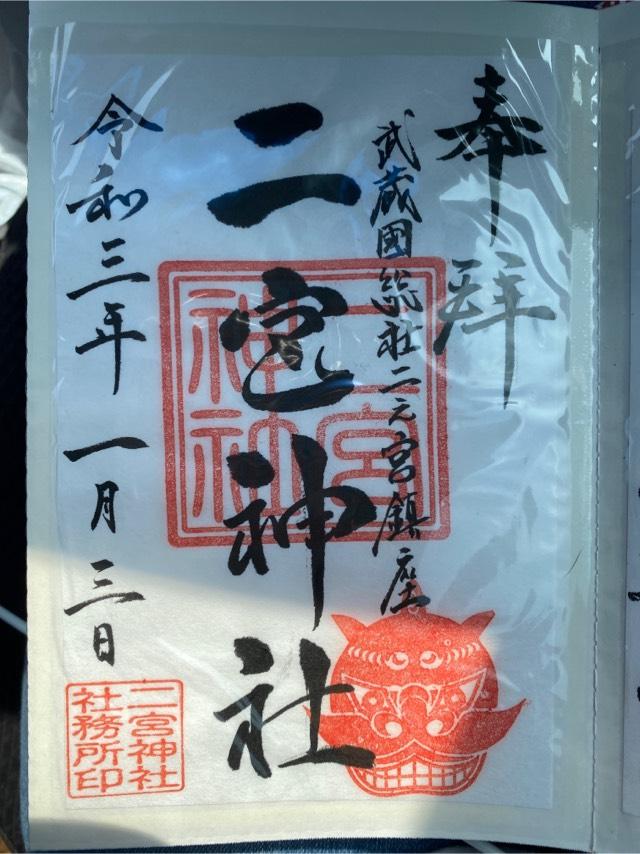 奉拝
武蔵國総社二元宮鎮座
二宮神社
令和三年一月三日
二宮神社
二宮神社
社務所印